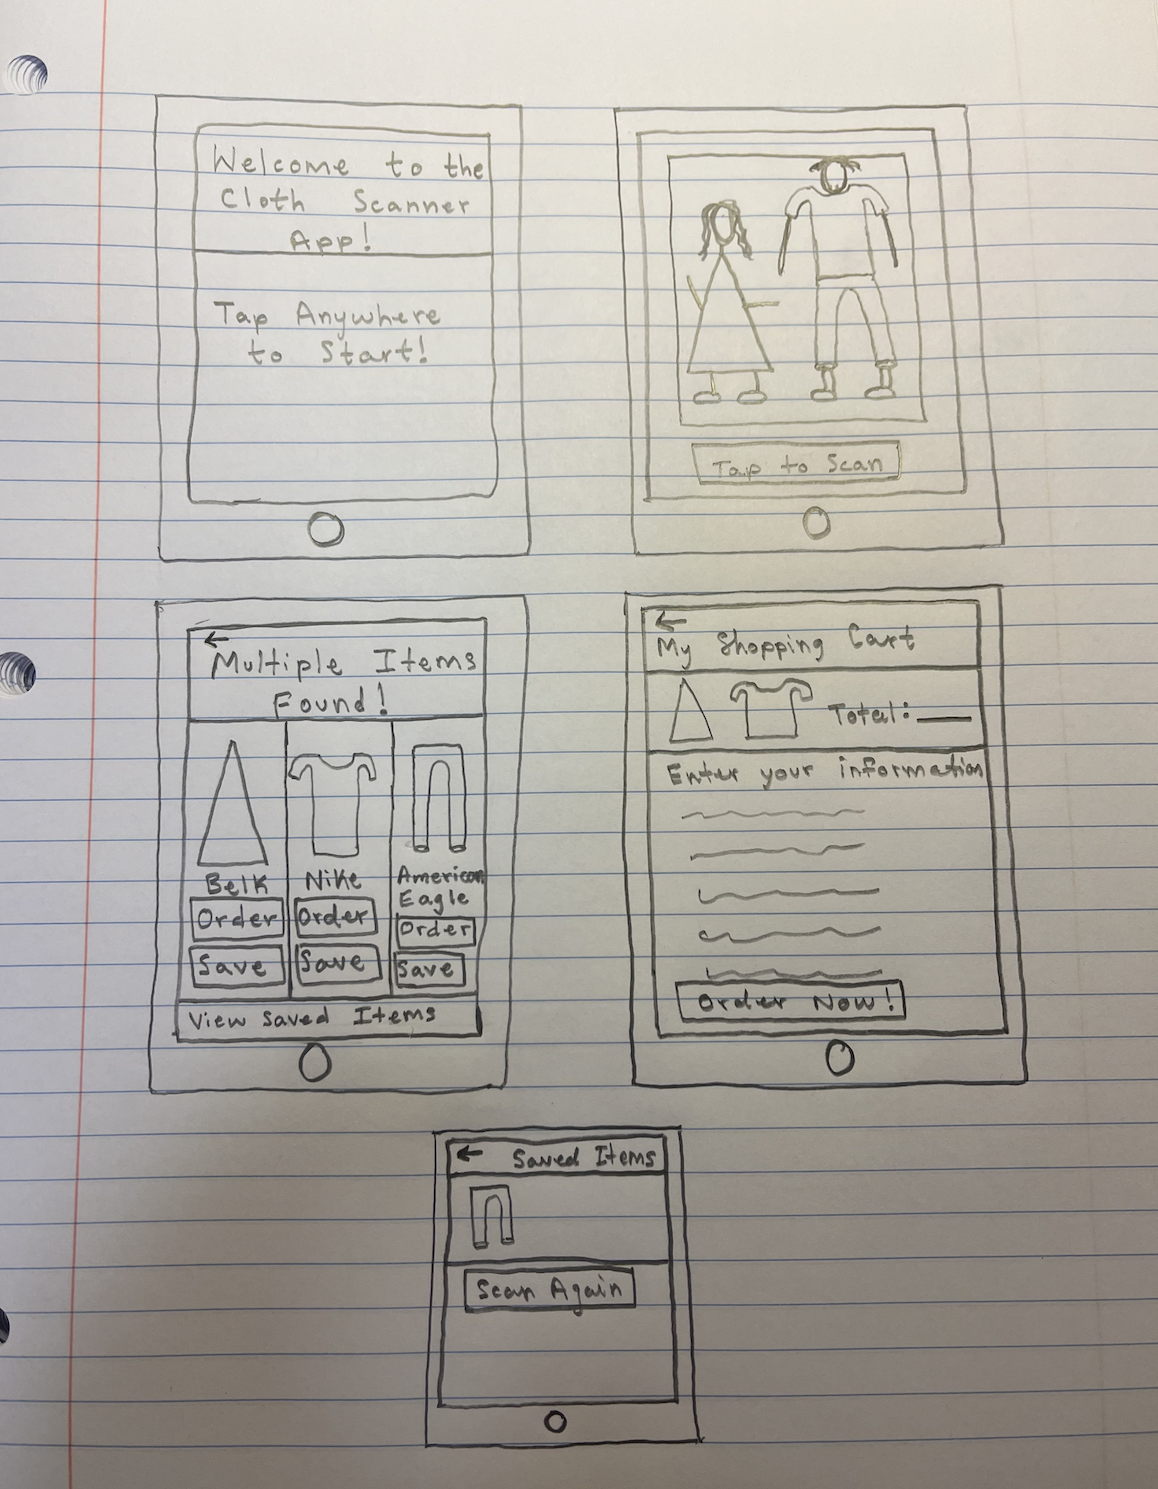 Welcome to the
Cloth Scanner
App!
Tap Anywhere
to Start!
Tap to Scan
←
Multiple Items
Found!
Belk
Order
Save
Nike
Order
Save
American
Eagle
Order
Save
View Saved Items
←
My Shopping Cart
Total:
Enter your information
Order Now!
← Saved Items
Scan Again